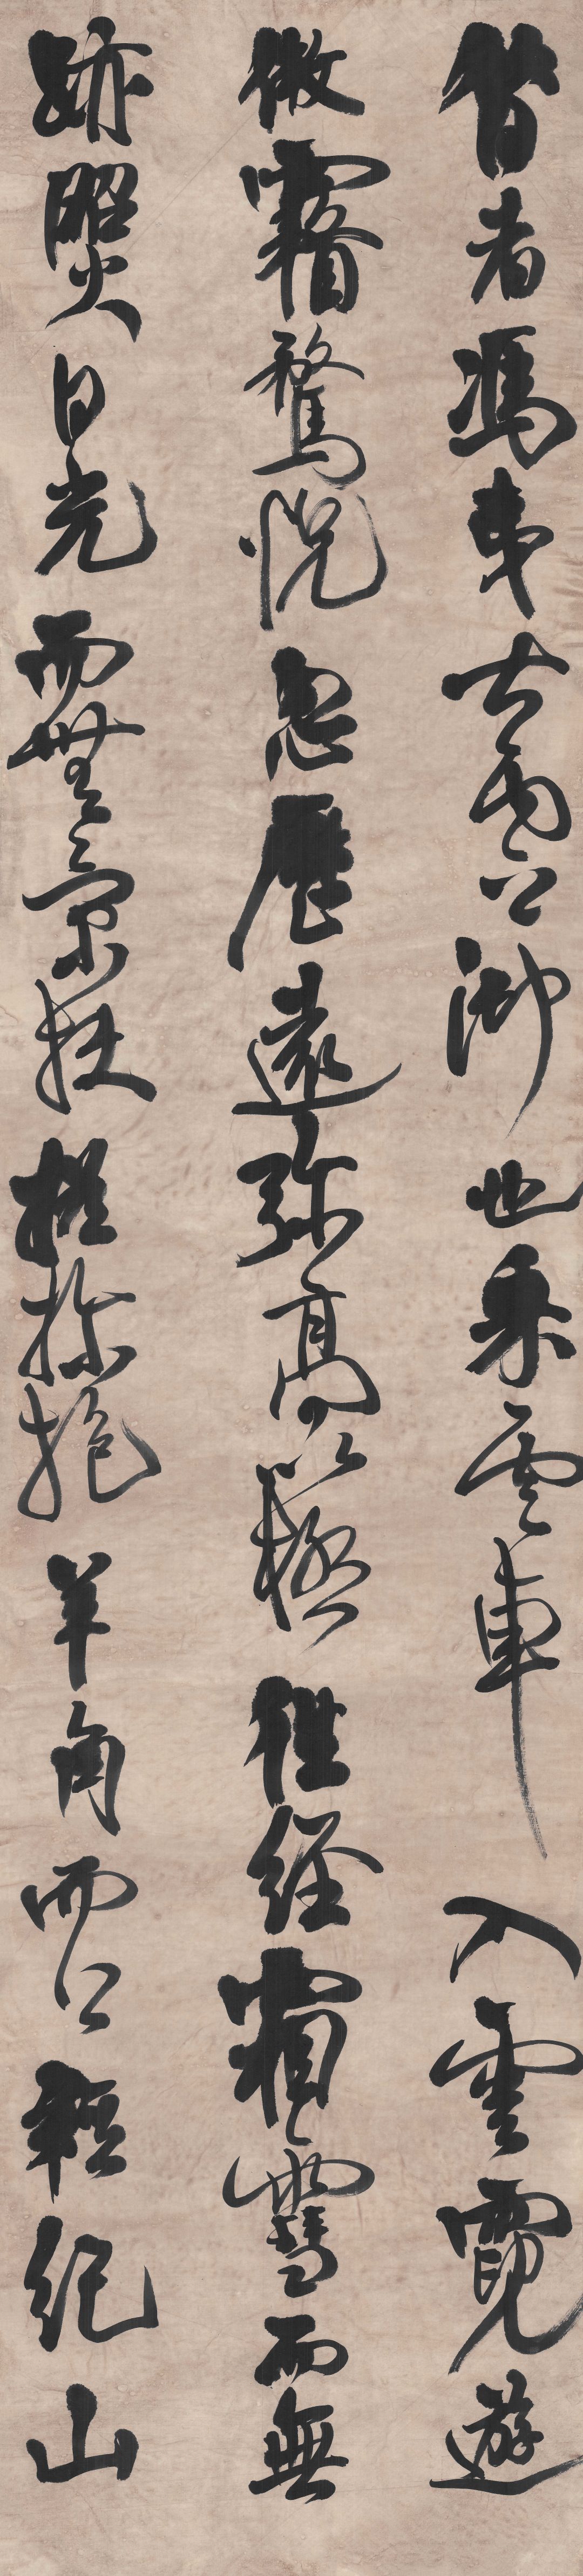 昔者馮夷大丙之御也乘雲車入雲霓遊
微霧騖怳忽歷遠弥高以極往經霜雪而無
跡照日光而無景扶摇抮抱羊角而上經紀山